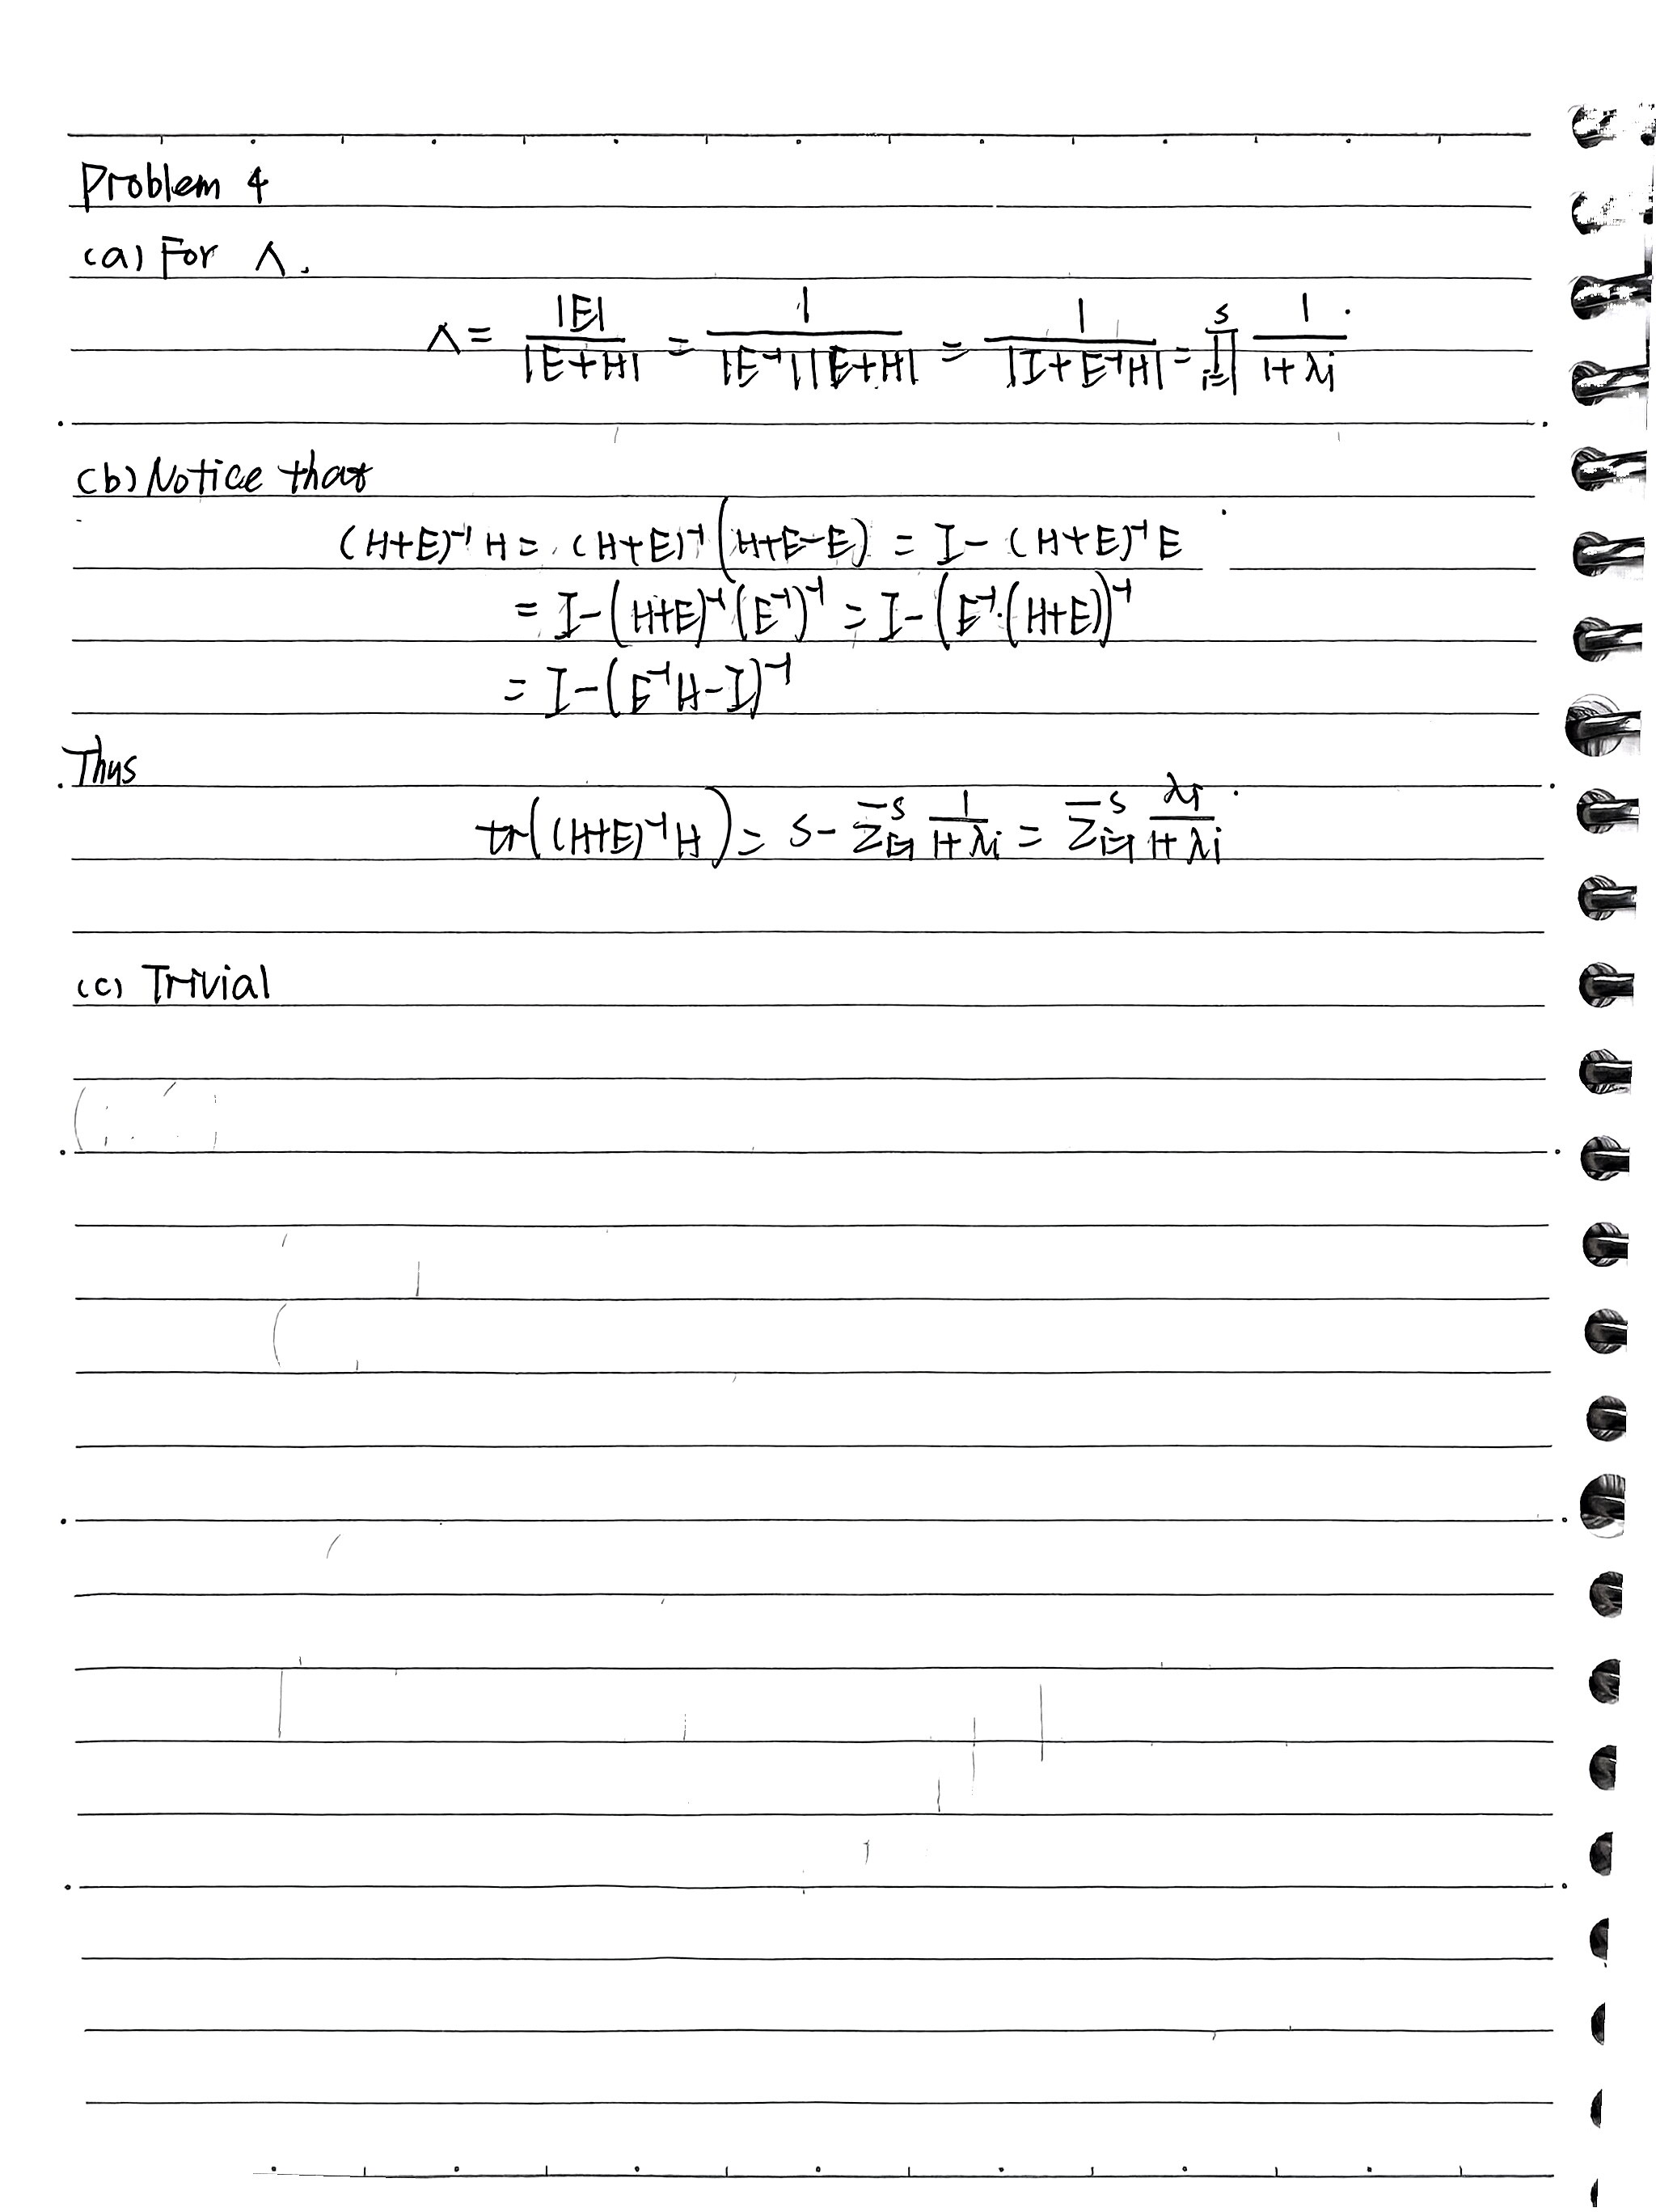 Problem 4
(a) For Λ.
Λ = |E| / |E+H| = 1 / |E⁻¹||E+H| = 1 / |I+E⁻¹H| = ∏_{i=1}^{s} 1 / 1+λi
(b) Notice that
(H+E)⁻¹ H = (H+E)⁻¹ (H+E-E) = I - (H+E)⁻¹ E
= I - (H+E)⁻¹ (E⁻¹)⁻¹ = I - (E⁻¹·(H+E))⁻¹
= I - (E⁻¹H - I)⁻¹
Thus
tr((H+E)⁻¹H) = s - Σ_{i=1}^{s} 1 / 1+λi = Σ_{i=1}^{s} λi / 1+λi
(c) Trivial